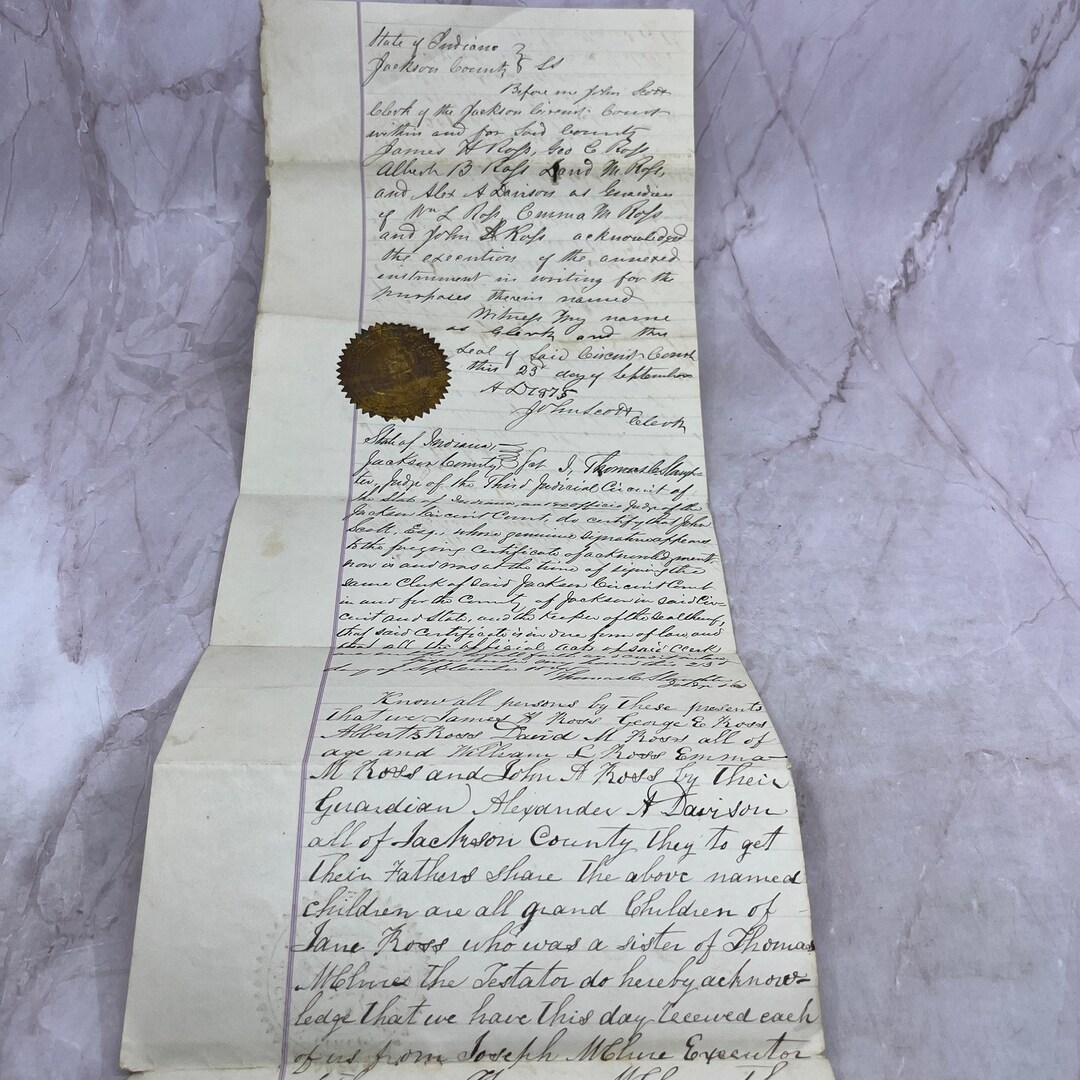 State of Indiana
Jackson County } SS
Before me John Scott
Clerk of the Jackson Circuit Court
within and for Said County
James H Ross, Geo E Ross
Albert B Ross David M Ross,
and Alex A Davison as Guardian
of Wm L Ross, Emma M Ross
and John A Ross acknowledged
the execution of the annexed
instrument in writing for the
purposes therein named
Witness my name
as Clerk and the
Seal of Said Circuit Court
this 23d day of September
A D 1875
John Scott
Clerk
State of Indiana,
Jackson County, } Sct I, Thomas C Slaugh-
ter, Judge of the Third Judicial Circuit of
the State of Indiana, and exofficio Judge of the
Jackson Circuit Court, do certify that John
Scott, Esq., whose genuine signature appears
to the foregoing certificate of acknowledgment
now is and was at the time of signing the
same Clerk of said Jackson Circuit Court
in and for the County of Jackson in said Cir-
cuit and State, and the keeper of the seal thereof,
that said Certificate is in due form of law, and
that all the official acts of said Clerk
this 23d
day of September
Thomas C Slaughter
Judge
Know all persons by these presents
that we James H Ross George E Ross
Albert B Ross David M Ross all of
age and William L Ross Emma
M Ross and John A Ross by their
Guardian Alexander A Davison
all of Jackson County they to get
their Fathers share the above named
children are all grand Children of
Jane Ross who was a sister of Thomas
McClure the Testator do hereby acknow-
ledge that we have this day received each
of us from Joseph McClure Executor